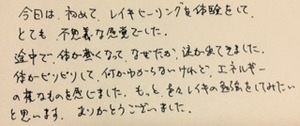 今日は、初めて、レイキヒーリングを体験をして、
とても 不思議な感覚でした。
途中で、体が熱くなって、なぜだか、涙が出てきました。
体がビリビリして、何かわからないけれど、エネルギー
の様なものを感じました。もっと、色々レイキの勉強をしてみたい
と思います。ありがとうございました。